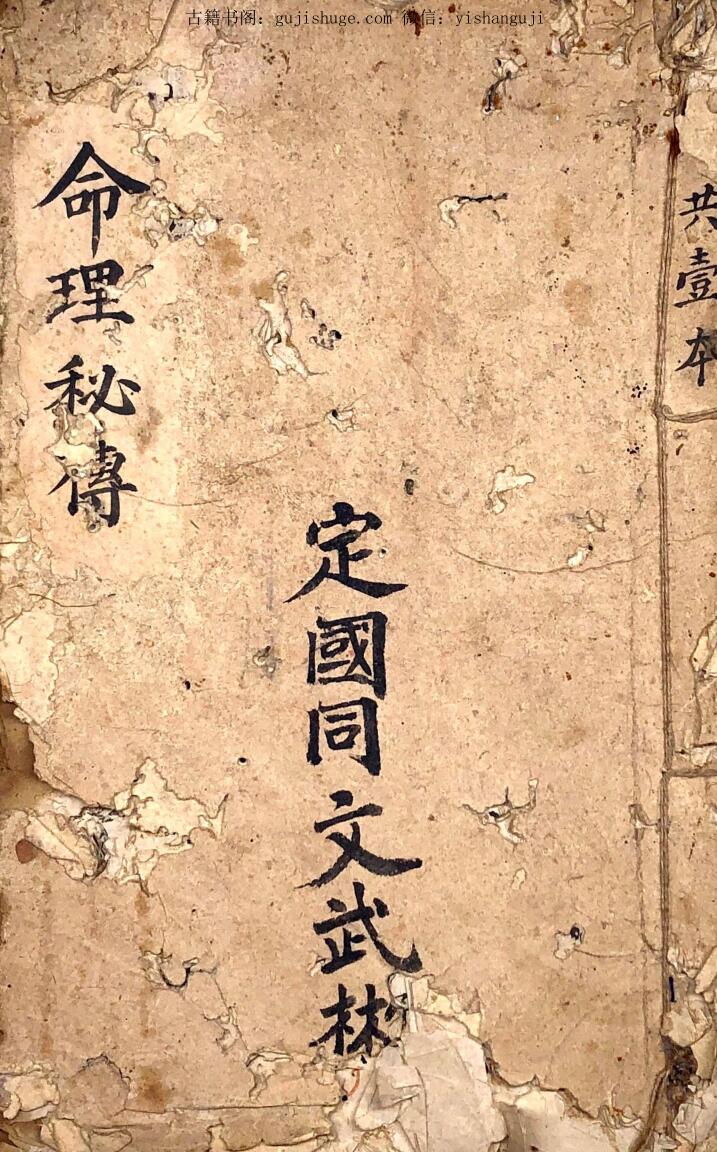 古籍书阁：gujishuge.com 微信：yishanguji
共壹本
定國同文武彬
命理秘傳